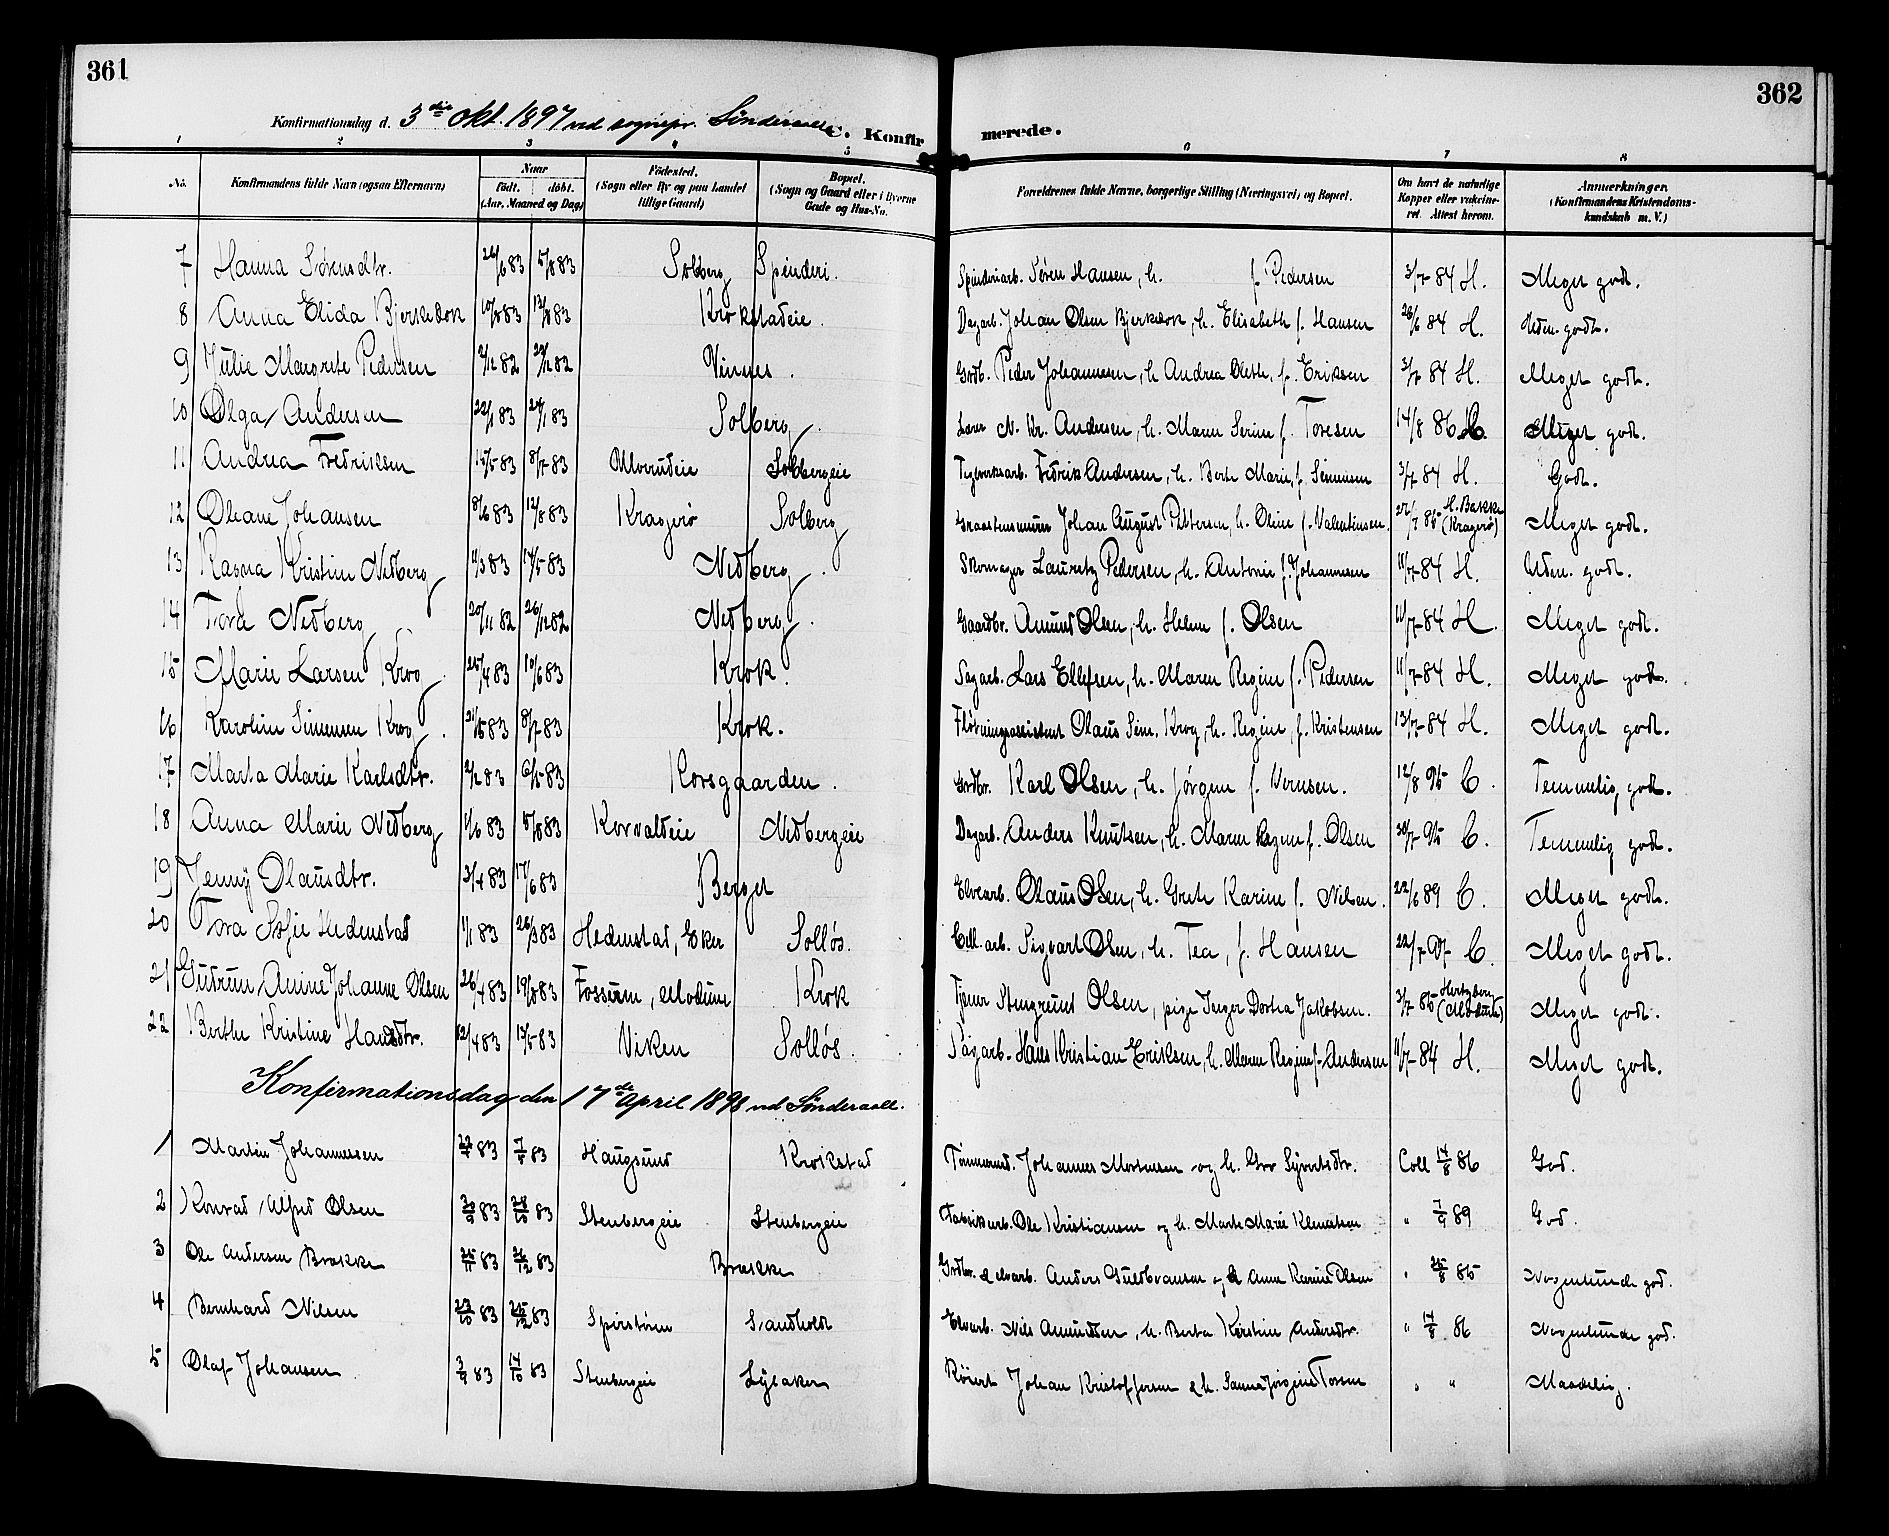 361
362
Konfirmationsdag d. 3die Okt. 1897 ved sognepr. Sönderaall C. Konfir merede.
1 2 3 4 5 6 7 8
No. Konfirmandens fulde Navn (ogsaa Efternavn) Naar födt. döbt. (Aar, Maaned og Dag) Födested. (Sogn eller By og paa Landet tillige Gaard) Bopæl. (Sogn og Gaard eller i Byerne Gade og Hus-No. Forældrenes fulde Navne, borgerlige Stilling (Næringsvei) og Bopæl. Om havt de naturlige Kopper eller vakcineret. Attest herom. Anmærkninger. (Konfirmandens Kristendomskundskab m. V.)
7 Hanna Sørensdtr. 26/6 83 5/8 83 Solberg Spinderi. Spinderiarb. Søren Hansen, h. f. Pedersen 3/7 84 H. Meget godt.
8 Anna Elida Bjerkedok 10/8 83 83 Krokstadeie. Dagarb. Johan Olsen Bjerkedok, h. Elisabeth f. Hansen 26/6 84 H. Uden. godt.
9 Julie Margrete Pedersen 2/12 82 29/12 82 Vinnes. Grdb. Peder Johannesen, h. Andrea Oleth. f. Eriksen 3/7 84 H. Meget godt.
10 Olga Andersen 22/1 83 83 Solberg. Lærer N. Kr. Andersen, h. Maren Serine f. Toresen 14/8 86 Meget godt.
11 Andrea Fredriksen 15/5 83 8/7 83 Solbergeie Teglverksarb. Fredrik Andersen, h. Berte Marie, f. Simensen 3/7 84 H. Godt.
12 Oleane Johansen 8/6 83 12/8 83 Kragerø Solberg Johan August Pettersen, h. Oline f. Valentinsen. 27/7 85 H. Bakke (Kragerø) Meget godt.
13 Ragna Kristine Nedberg 11/3 83 14/5 83 Nedberg. Skomager Lauritz Pedersen, h. Antonie f. Johannesen 11/7 84 H. Uden. godt.
14 Tora Nedberg 20/11 82 26/12 82 Nedberg. Gaardbr. Amund Olsen, h. Helene f. Olsen 11/7 84 H. Meget godt.
15 Marie Larsen Krog. 25/4 83 10/6 83 Krok. Sagarb. Lars Ellefsen, h. Maren Regine f. Pedersen 11/7 84 H. Meget godt.
16 Karoline Simensen Krog. 21/5 83 8/7 83 Krok. Fløtningsassistent Olaus Sim. Krog, h. Regine, f. Kristensen 13/7 84 H. Meget godt.
17 Marta Marie Karlsdtr. 2/2 83 6/5 83 Korsgaarden. Grdbr. Karl Olsen, h. Jørgine f. Vernsen. 12/8 95 C. Temmelig godt.
18 Anna Marie Nedberg 11/6 83 5/8 83 Korvaldeie Nedbergeie Dagarb. Anders Knutsen, h. Maren Regine f. Olsen 30/7 95 C. Temmelig godt.
19 Jenny Olausdtr. 3/4 83 17/6 83 Berget Elvearb. Olaus Olsen, h. Grete Karine f. Nilsen. 22/6 89 C. Meget godt.
20 Tora Sofie Hedenstad 1/1 83 26/3 83 Hedenstad, Eker Solløs. Cell. arb. Sigvart Olsen, h. Tea, f. Hansen 22/7 97 C. Meget godt.
21 Gudrun Anine Johanne Olsen 26/4 83 19/8 83 Fossum, Modum Krok Tjener Stengrund Olsen, pige Inger Dortea Jakobsen. 3/7 85 Hertzberg (Modum) Meget godt.
22 Berthe Kristine Hansdtr. 12/4 83 13/5 83 Viken Solløs. Sagarb. Hans Kristian Eriksen, h. Maren Regine f. Andersen 11/7 84 H. Meget godt.
Konfirmationsdag den 17de April 1898 ved Sönderaall.
1 Martin Johannessen 83 83 Haugsund Krokstad Tømmermd. Johannes Mortensen og h. Gro Syvertsdtr. Coll 14/8 86 God.
2 Konrad Alfred Olsen 83 28/10 83 Stenbergeie Stenbergeie Fabrikarb. Ole Kristiansen og h. Marte Marie Klemetsen " 7/9 89 God.
3 Ole Andersen Brække 25/11 83 26/12 83 Brække Grdbr. & elvarb. Anders Guldbransen og h. Anne Karine Olsen " 25/8 85 Nogenlunde god.
4 Bernhard Nilsen 27/10 83 25/12 83 Spirstøren Sandholdt Elvarb. Nils Amundsen, h. Berta Kirstine Andersdtr. " 17/8 86 Nogenlunde god.
5 Olaf Johansen 3/9 83 14/10 83 Stenbergeie Lylaker Johan Kristoffersen & h. Sanna Jørgine Torsen " " Maadelig.